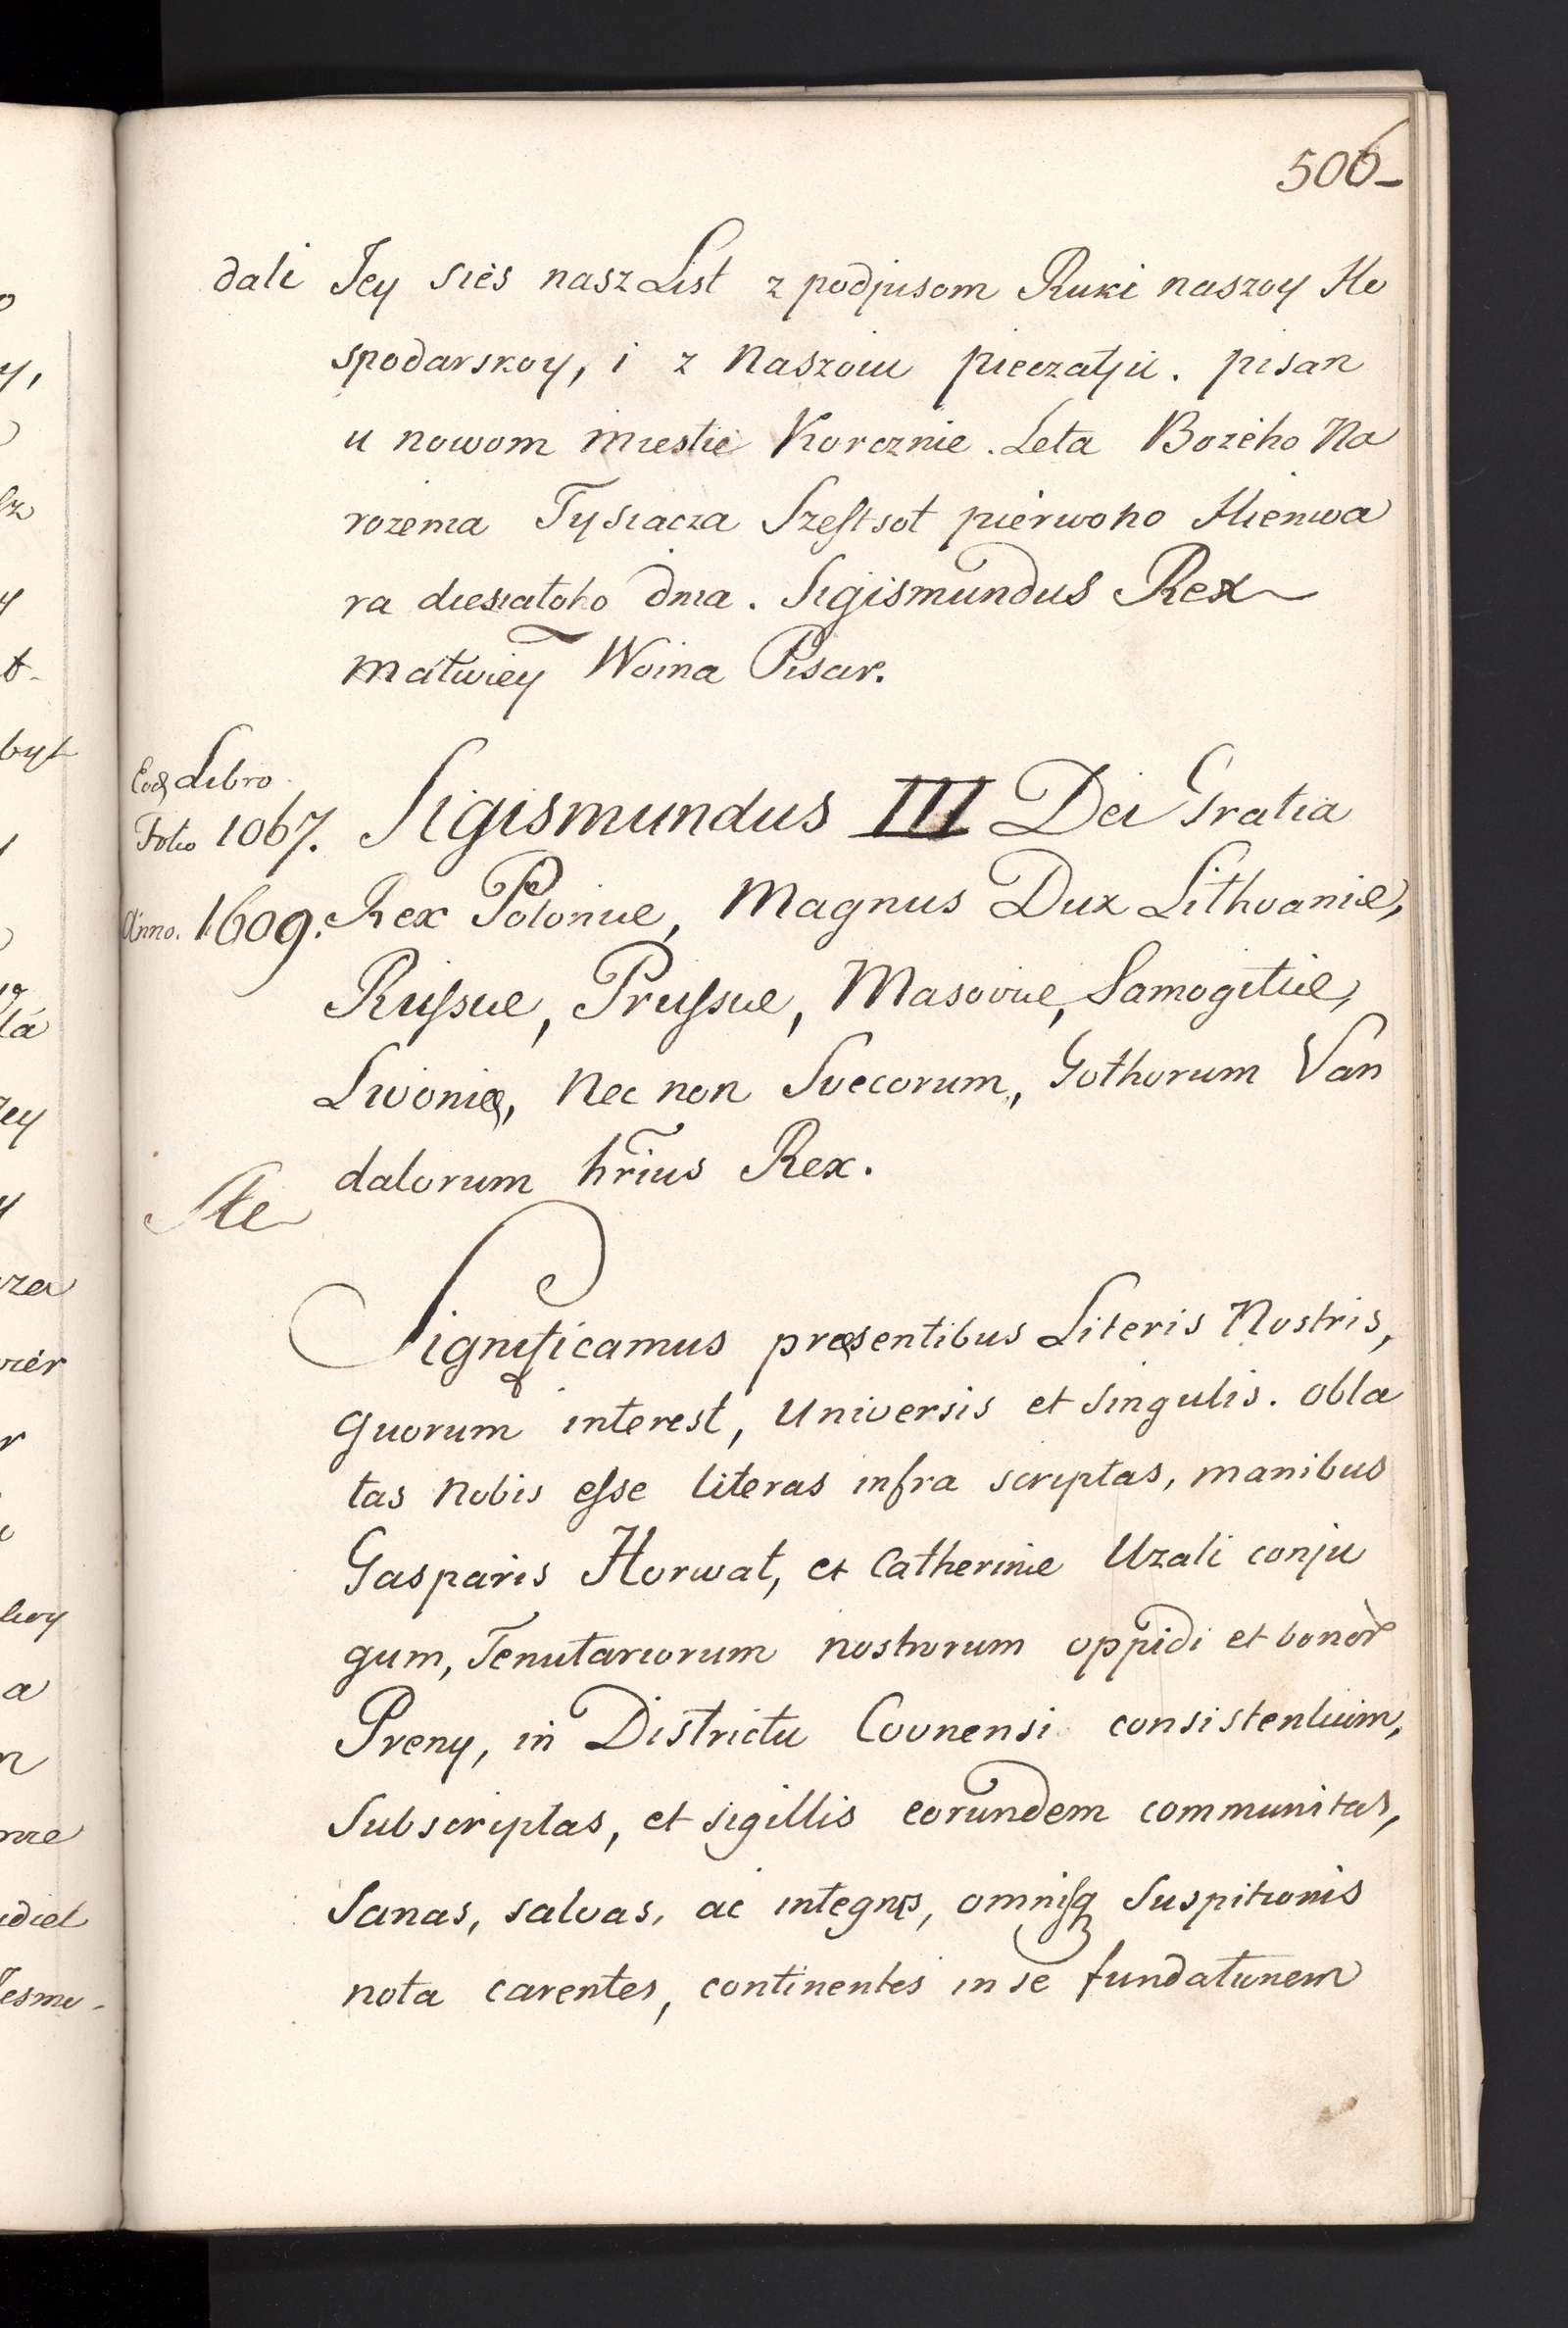 506
dali Jey siès nasz List z podpisom Ruki naszoy Ho
spodarskoy, i z Naszoiu pieczatju. pisan
u nowom miestie Korcznie. Leta Bożeho Na
rożenia Tysiacza Szestsot pièrwoho Hienwa
ra diesiatoho dnia. Sigismundus Rex
Matwiey Woina Pisar.
Eod Libro
Folio 1067.
Anno. 1609.
Sigismundus III Dei Gratia
Rex Poloniæ, Magnus Dux Lithvaniæ,
Russiæ, Prussiæ, Masoviæ, Samogitiæ,
Livoniæ, Nec non Svecorum, Gothorum Van
dalorum hrius Rex.
Significamus præsentibus Literis Nostris,
quorum interest, Universis et Singulis. obla
tas Nobis esse literas infra scriptas, manibus
Gasparis Horwat, et Catherinæ Uzali conju
gum, Tenutariorum nostrorum oppidi et bonor
Preny, in Districtu Covnensi consistentium,
Subscriptas, et sigillis eorundem communitas,
Sanas, salvas, ac integras, omnisq Suspitionis
nota carentes, continentes in se fundationem